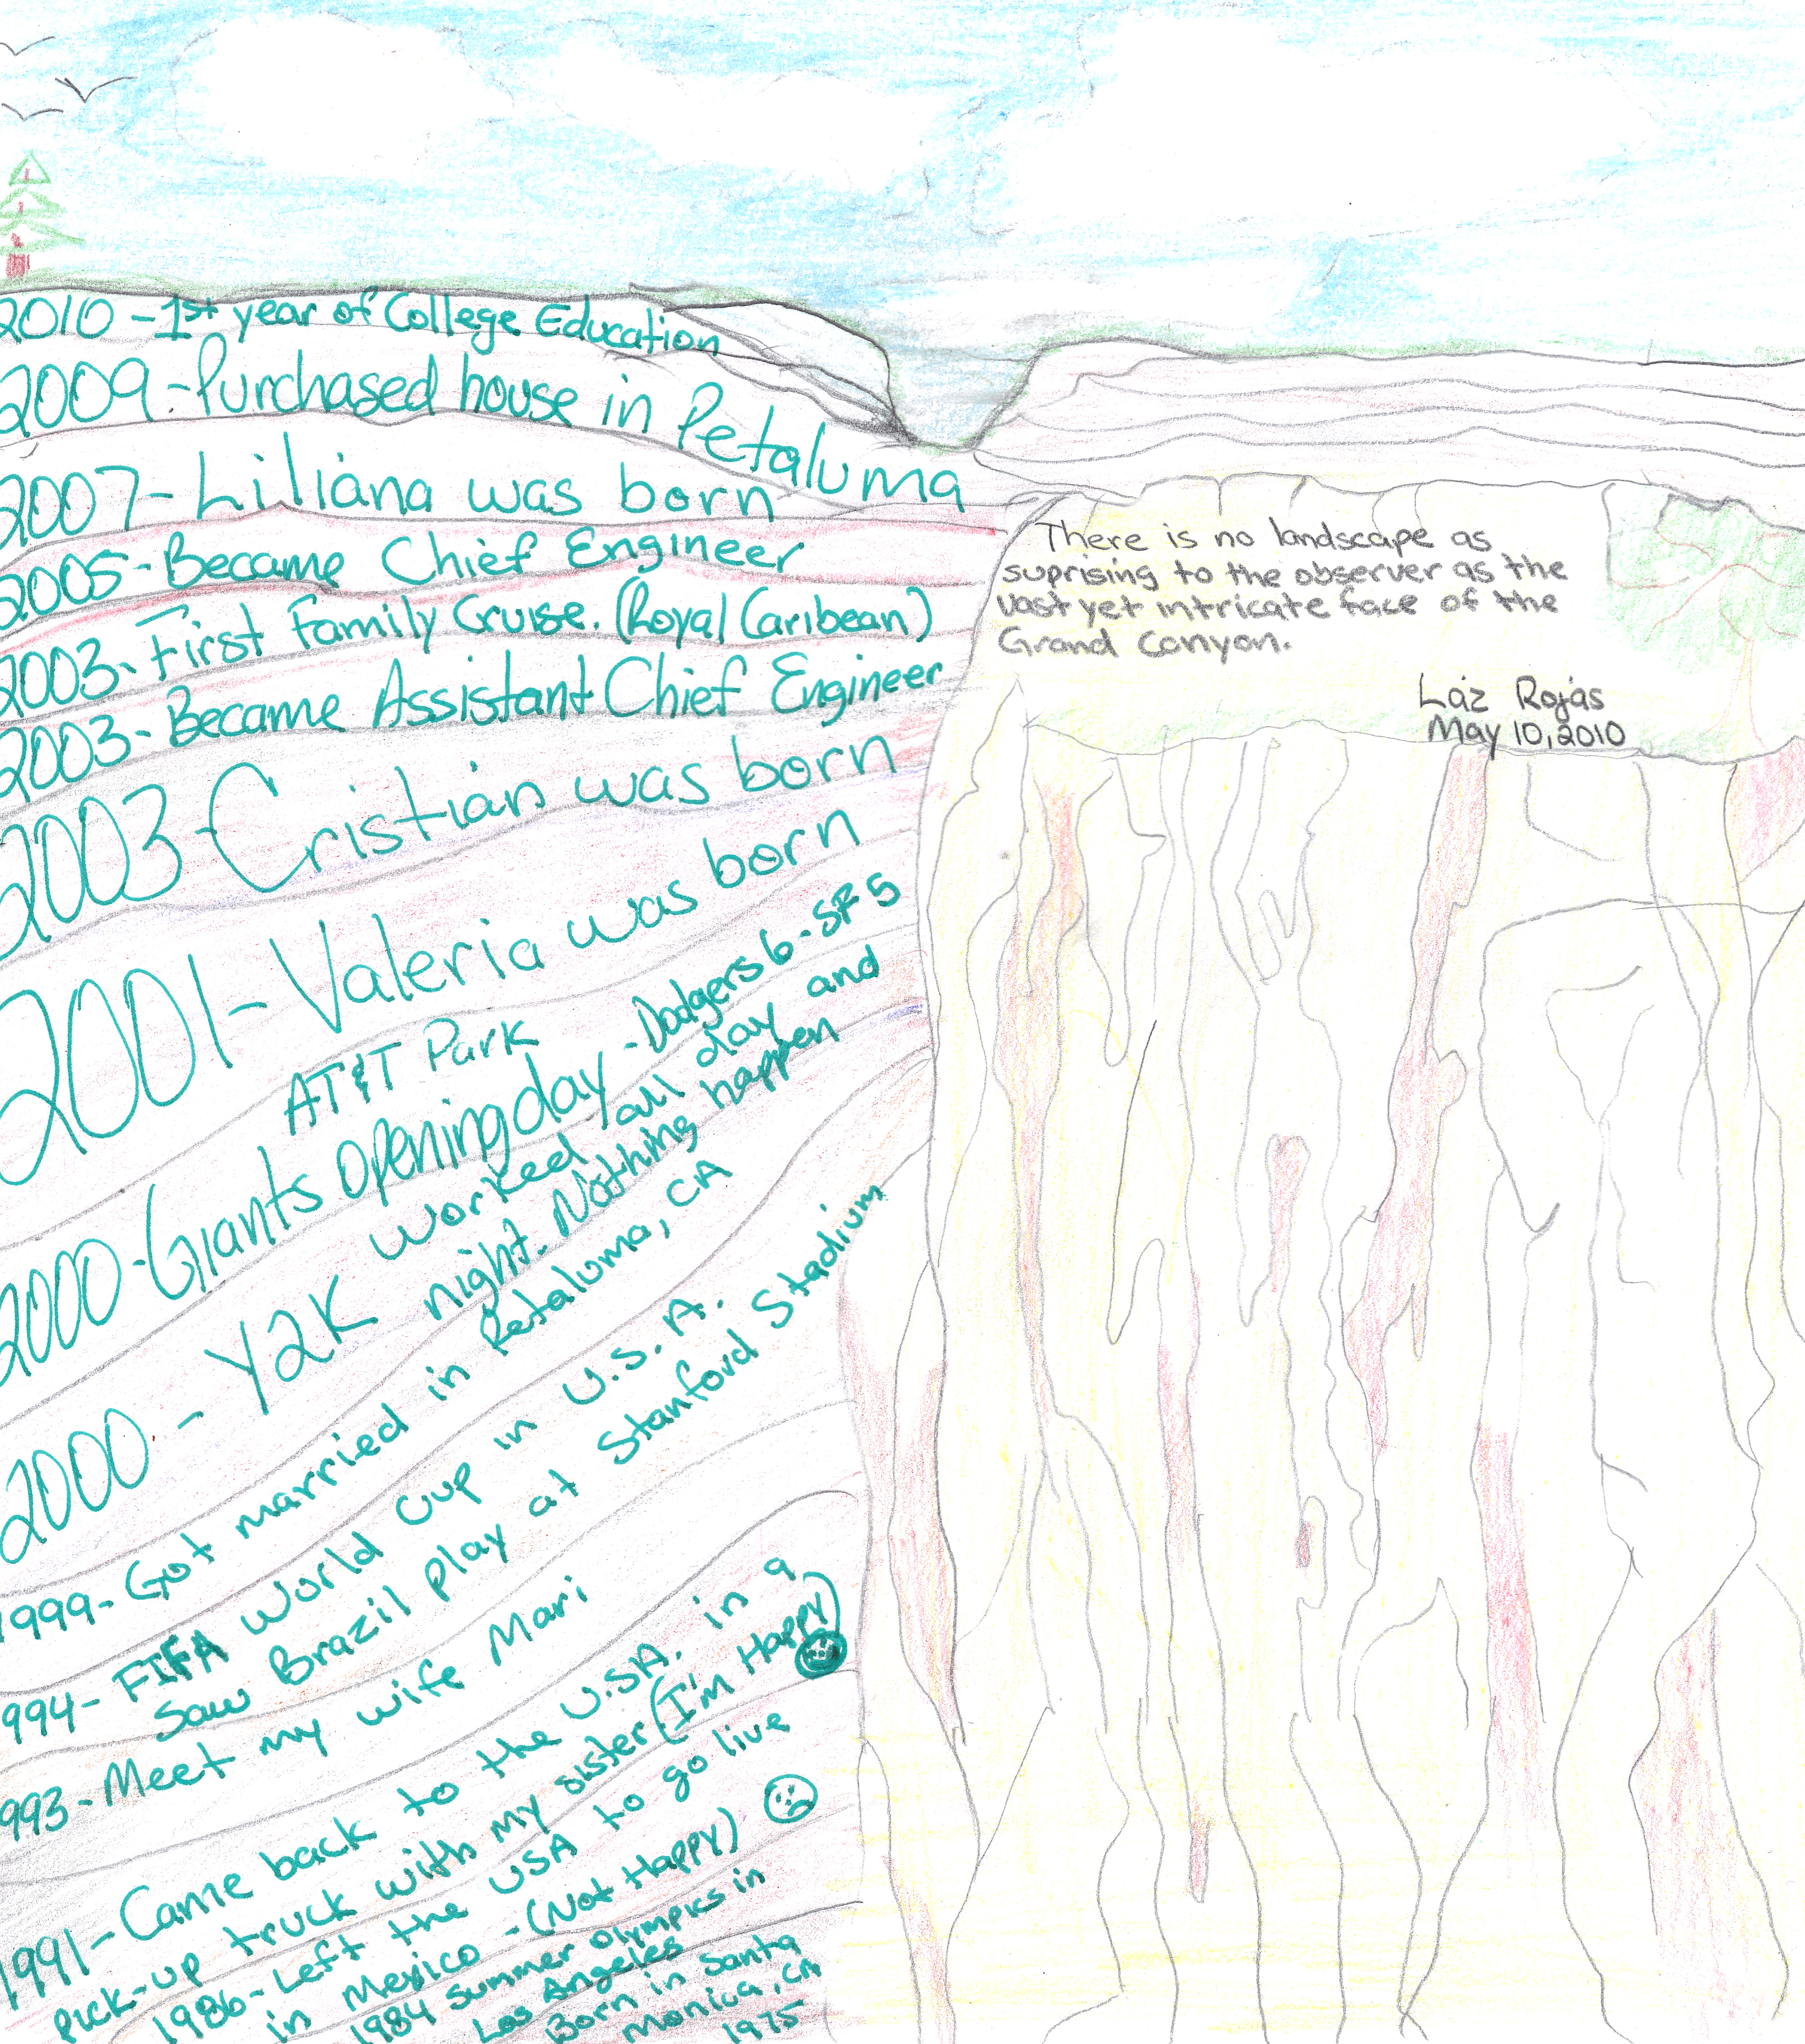 2010 - 1st year of College Education
2009 - Purchased house in Petaluma
2007 - Liliana was born
2005 - Became Chief Engineer
2003 - First Family Cruise. (Royal Caribean)
2003 - Became Assistant Chief Engineer
2003 - Cristian was born
2001 - Valeria was born
AT&T Park
2000 - Giants opening day - Dodgers 6 - SF 5
2000 - Y2K worked all day and
night. Nothing happen
1999 - Got married in Petaluma, CA
1994 - FIFA World Cup in U.S.A.
Saw Brazil play at Stanford Stadium
1993 - Meet my wife Mari
1991 - Came back to the U.S.A. in a
Pick-up truck with my sister (I'm Happy)
1986 - Left the USA to go live
in Mexico - (Not Happy)
1984 Summer Olympics in
Los Angeles
Born in Santa
Monica, CA
1975
There is no landscape as
suprising to the observer as the
vast yet intricate face of the
Grand Canyon.
Laz Rojas
May 10, 2010